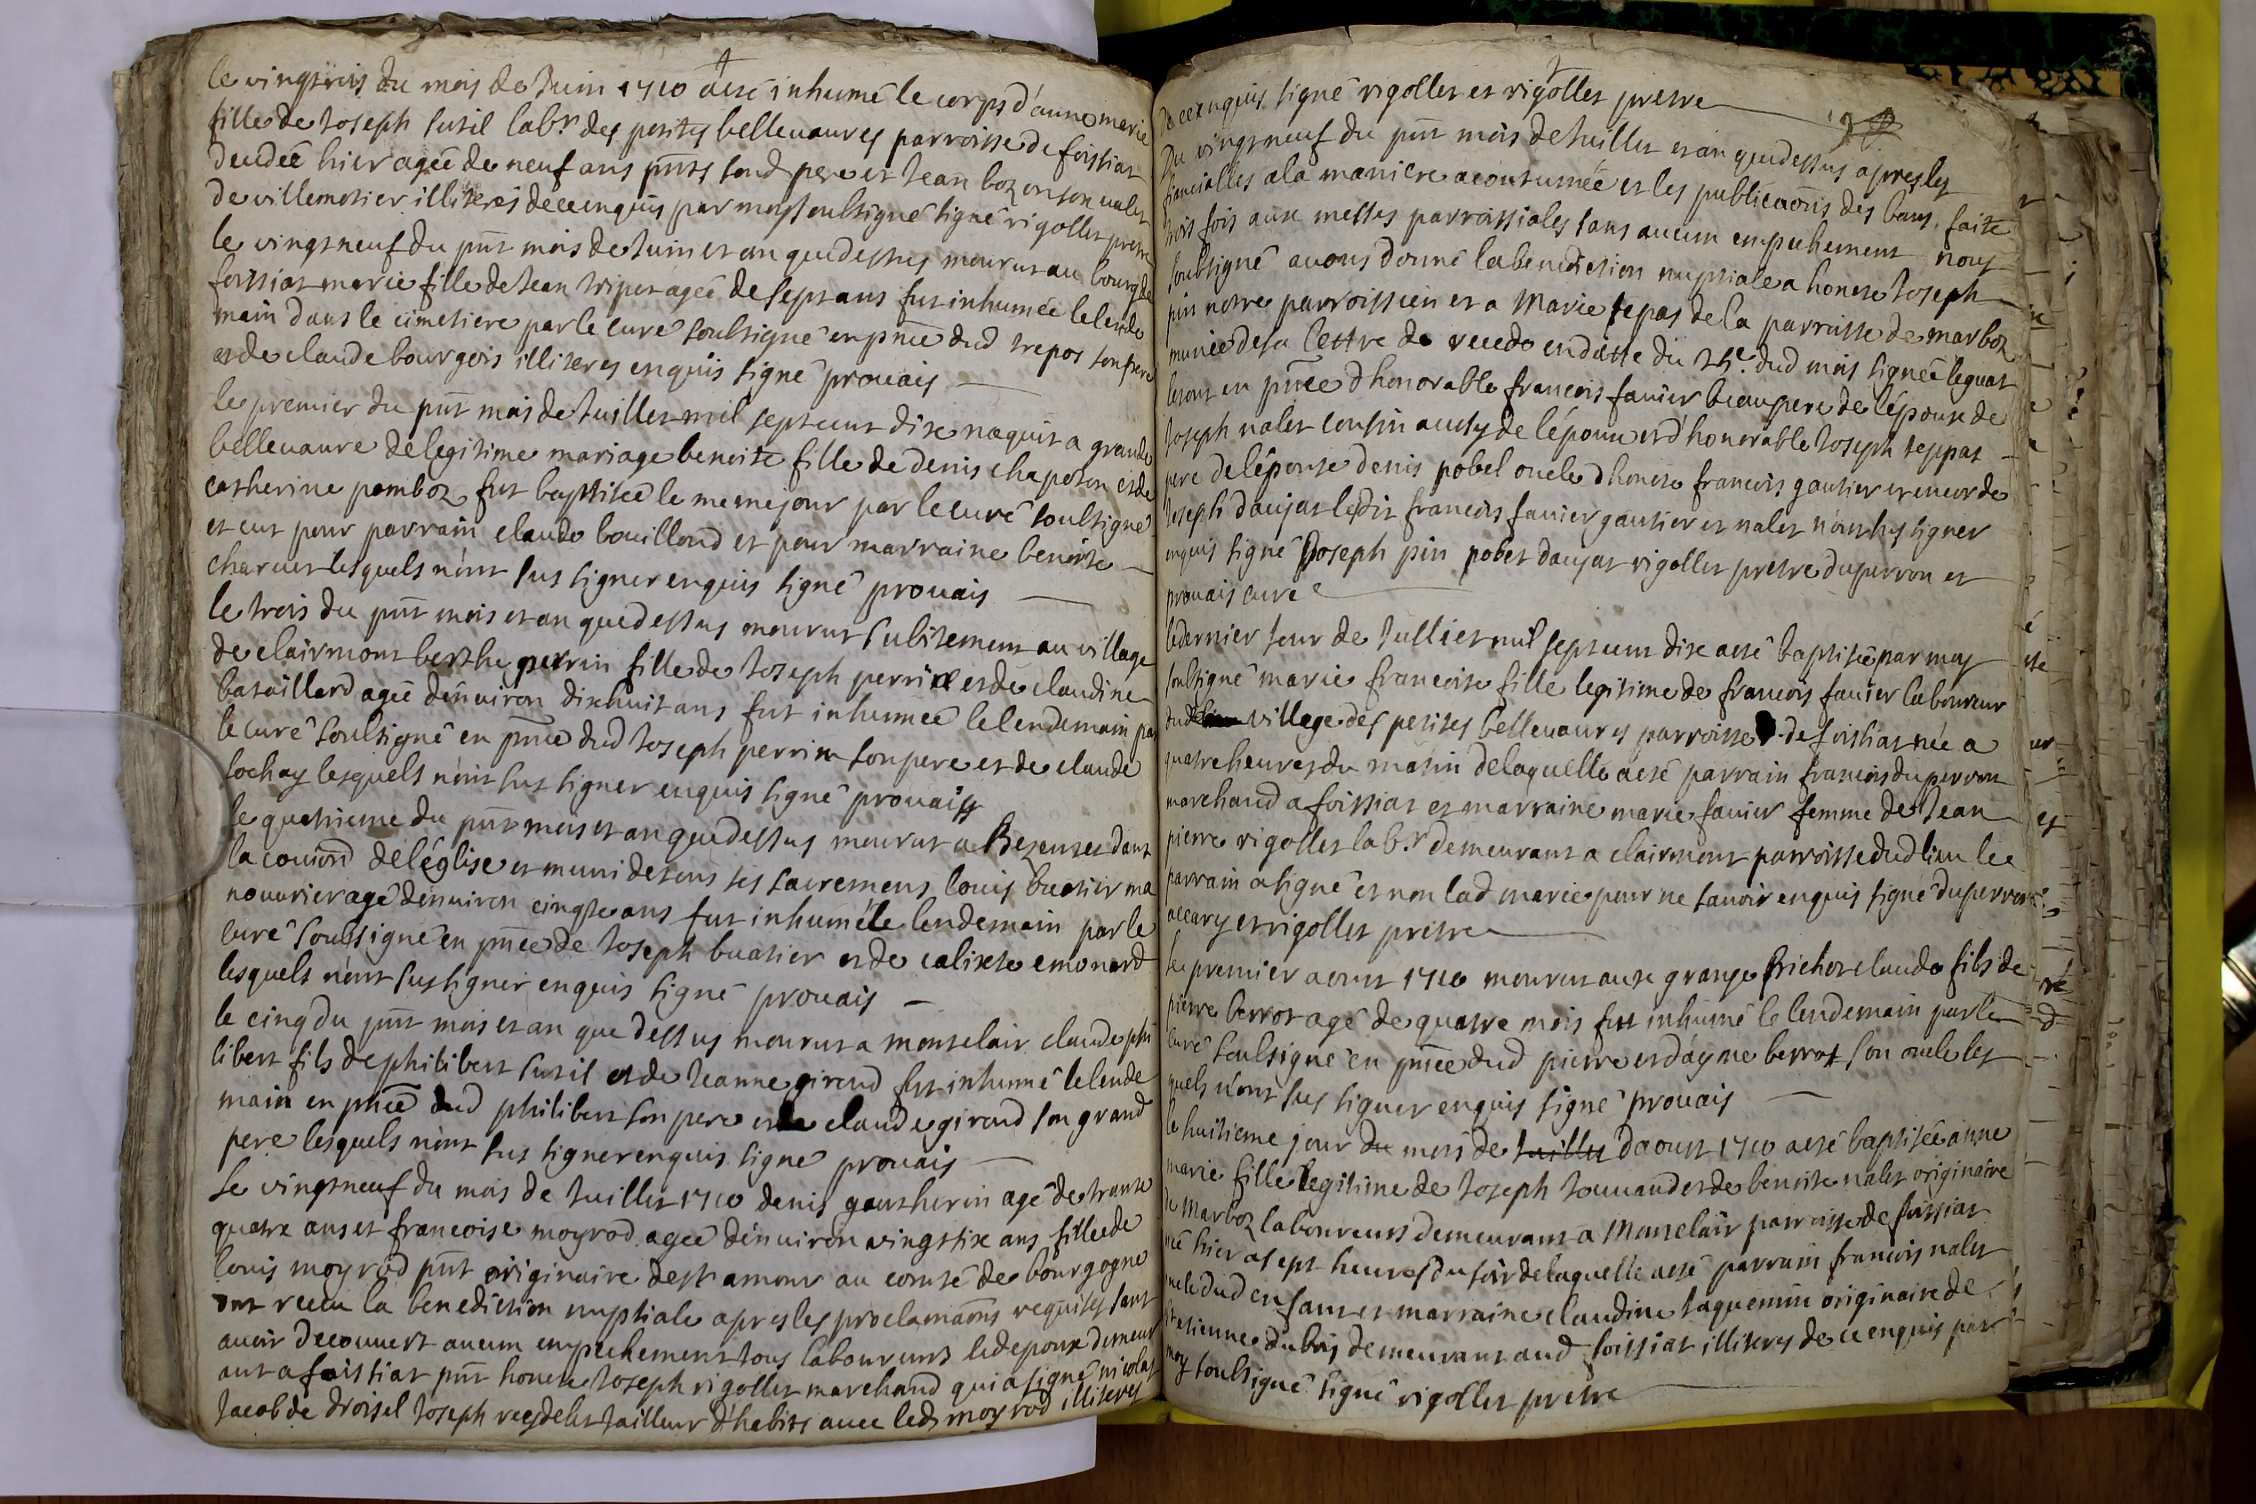 le vingtrois du mois de Juin 1710 a esté inhumé le corps d'anne marie
fille de Joseph Sutil labr. des petites bellevavres parroisse de foissiat
decedeé hier ageé de neuf ans pnts sond. pere et Jean boz en son valet
de villemotier illiterés de ce enquis par moy soubsigné signé rigollet pretre
le vingt neuf du pnt mois de Juin et an que dessus mourut au bourg de
foissiat marie fille de Jean tripoz ageé de sept ans fut inhumeé le lende
main dans le cimetiere par le curé soubsigné en pnce dud trepos son pere
et de claude bourgois illiteres enquis signé prouais
le premier du pnt mois de Juillet mil sept cent dix naquit a grande
bellevavre de legitime mariage benoite fille de denis chapoton et de
catherine pomboz fut baptiseé le meme jour par le curé soubsigné
et eut pour parrain claude bouillond et pour marraine benoite
charvet lesquels n'ont sus signer enquis signé prouais
le trois du pnt mois et an que dessus mourut subitement au village
de clairmont berthe perrin fille de Joseph perrin et de claudine
bataillard ageé d'environ dixhuit ans fut inhumeé le lendemain par
le curé soubsigné en pnce dud Joseph perrin son pere et de claude
sochay lesquels n'ont sus signer enquis signé prouais
le quatrieme du pnt mois et an que dessus mourut a Bezentet dans
la comiond de l'église et muni de tous ses sacremens louis buatier ma
nouvrier agé d'environ cinqte ans fut inhumé le lendemain par le
curé soubsigné en pnce de Joseph buatier et de calixte emonard
lesquels n'ont sus signer enquis signé prouais
le cinq du pnt mois et an que dessus mourut a montclair claude phi
libert fils de philibert sutil et de Jeanne giroud fut inhumé le lende
main en pnce dud philibert son pere et de claude giroud son grand
pere lesquels n'ont sus signer enquis signé prouais
Le vingt neuf du mois de Juillet 1710 denis gautherin agé de trante
quatre ans et francoise moyrod ageé d'environ vingt six ans fille de
louis moyrod pnt originaire de st amour au comté de bourgogne
ont receu la benediction nuptiale apres les proclamaons requises sans
avoir decouvert aucun empechement tous laboureurs led epoux demeur
ant a foissiat pnt honete Joseph rigollet marchand qui a signé nicolas
Jacob de droisel Joseph tailleur d'habits avec led moyrod illiteres
de ce enquis signé rigollet et rigollet pretre
Du vingt neuf du pnt mois de Juillet et an que dessus apres les
fiancialles a la maniere acoutumeé et les publicaons des bans faite
trois fois aux messes parroissiales sans aucun empechement nous
soubsigné avons donné la benediction nuptiale a honete Joseph
pin notre parroissien et a Marie tepas de la parroisse de marboz
munie de sa lettre de recedo en datte du 25e. dud mois signeé leguat
le tout en pnce d'honorable francois favier beaupere de l'époux de
Joseph nalet cousin aussy de l'époux et d'honorable Joseph teppat
pere de l'épouse denis pobel oncle d'honete francois gautier et encor de
Joseph daujat ledit francois favier gautier et nalet n'ont sus signer
enquis signé Joseph pin pobet daujat rigollet pretre duperron et
prouais curé
le dernier Jour de Jullict mil sept cent dix a esté baptiseé par moy
soubsigné marie francoise fille legitime de francois favier laboureur
dud village des petites bellevavres parroisse de foissiat neé a
quatre heures du matin de laquelle a esté parrain francois duperron
marchand a foissiat et marraine marie favier femme de Jean
pierre rigollet labr. demeurant a clairmont parroisse dud lieu le
parrain a signé et non lad marie pour ne savoir enquis signé duperron
accary et rigollet pretre
le premier aoust 1710 mourut aux grange Brichot claude fils de
pierre berrot agé de quatre mois fut inhumé le lendemain par le
curé soubsigné en pnce dud pierre et d'ayme berrot son oncle les
quels n'ont sus signer enquis signé prouais
le huitieme jour du mois de Juillet d'aoust 1710 a esté baptiseé anne
marie fille legitime de Joseph Jomand et de benoite nalet originaire
de Marboz laboureurs demeurant a Montclair parroisse de foissiat
neé hier a sept heures du soir de laquelle a esté parrain francois nalet
oncle dud enfant et marraine claudine Jaquemin originaire de
st etienne du bois demeurant aud foissiat illiteres de ce enquis par
moy soubsigné signé rigollet pretre